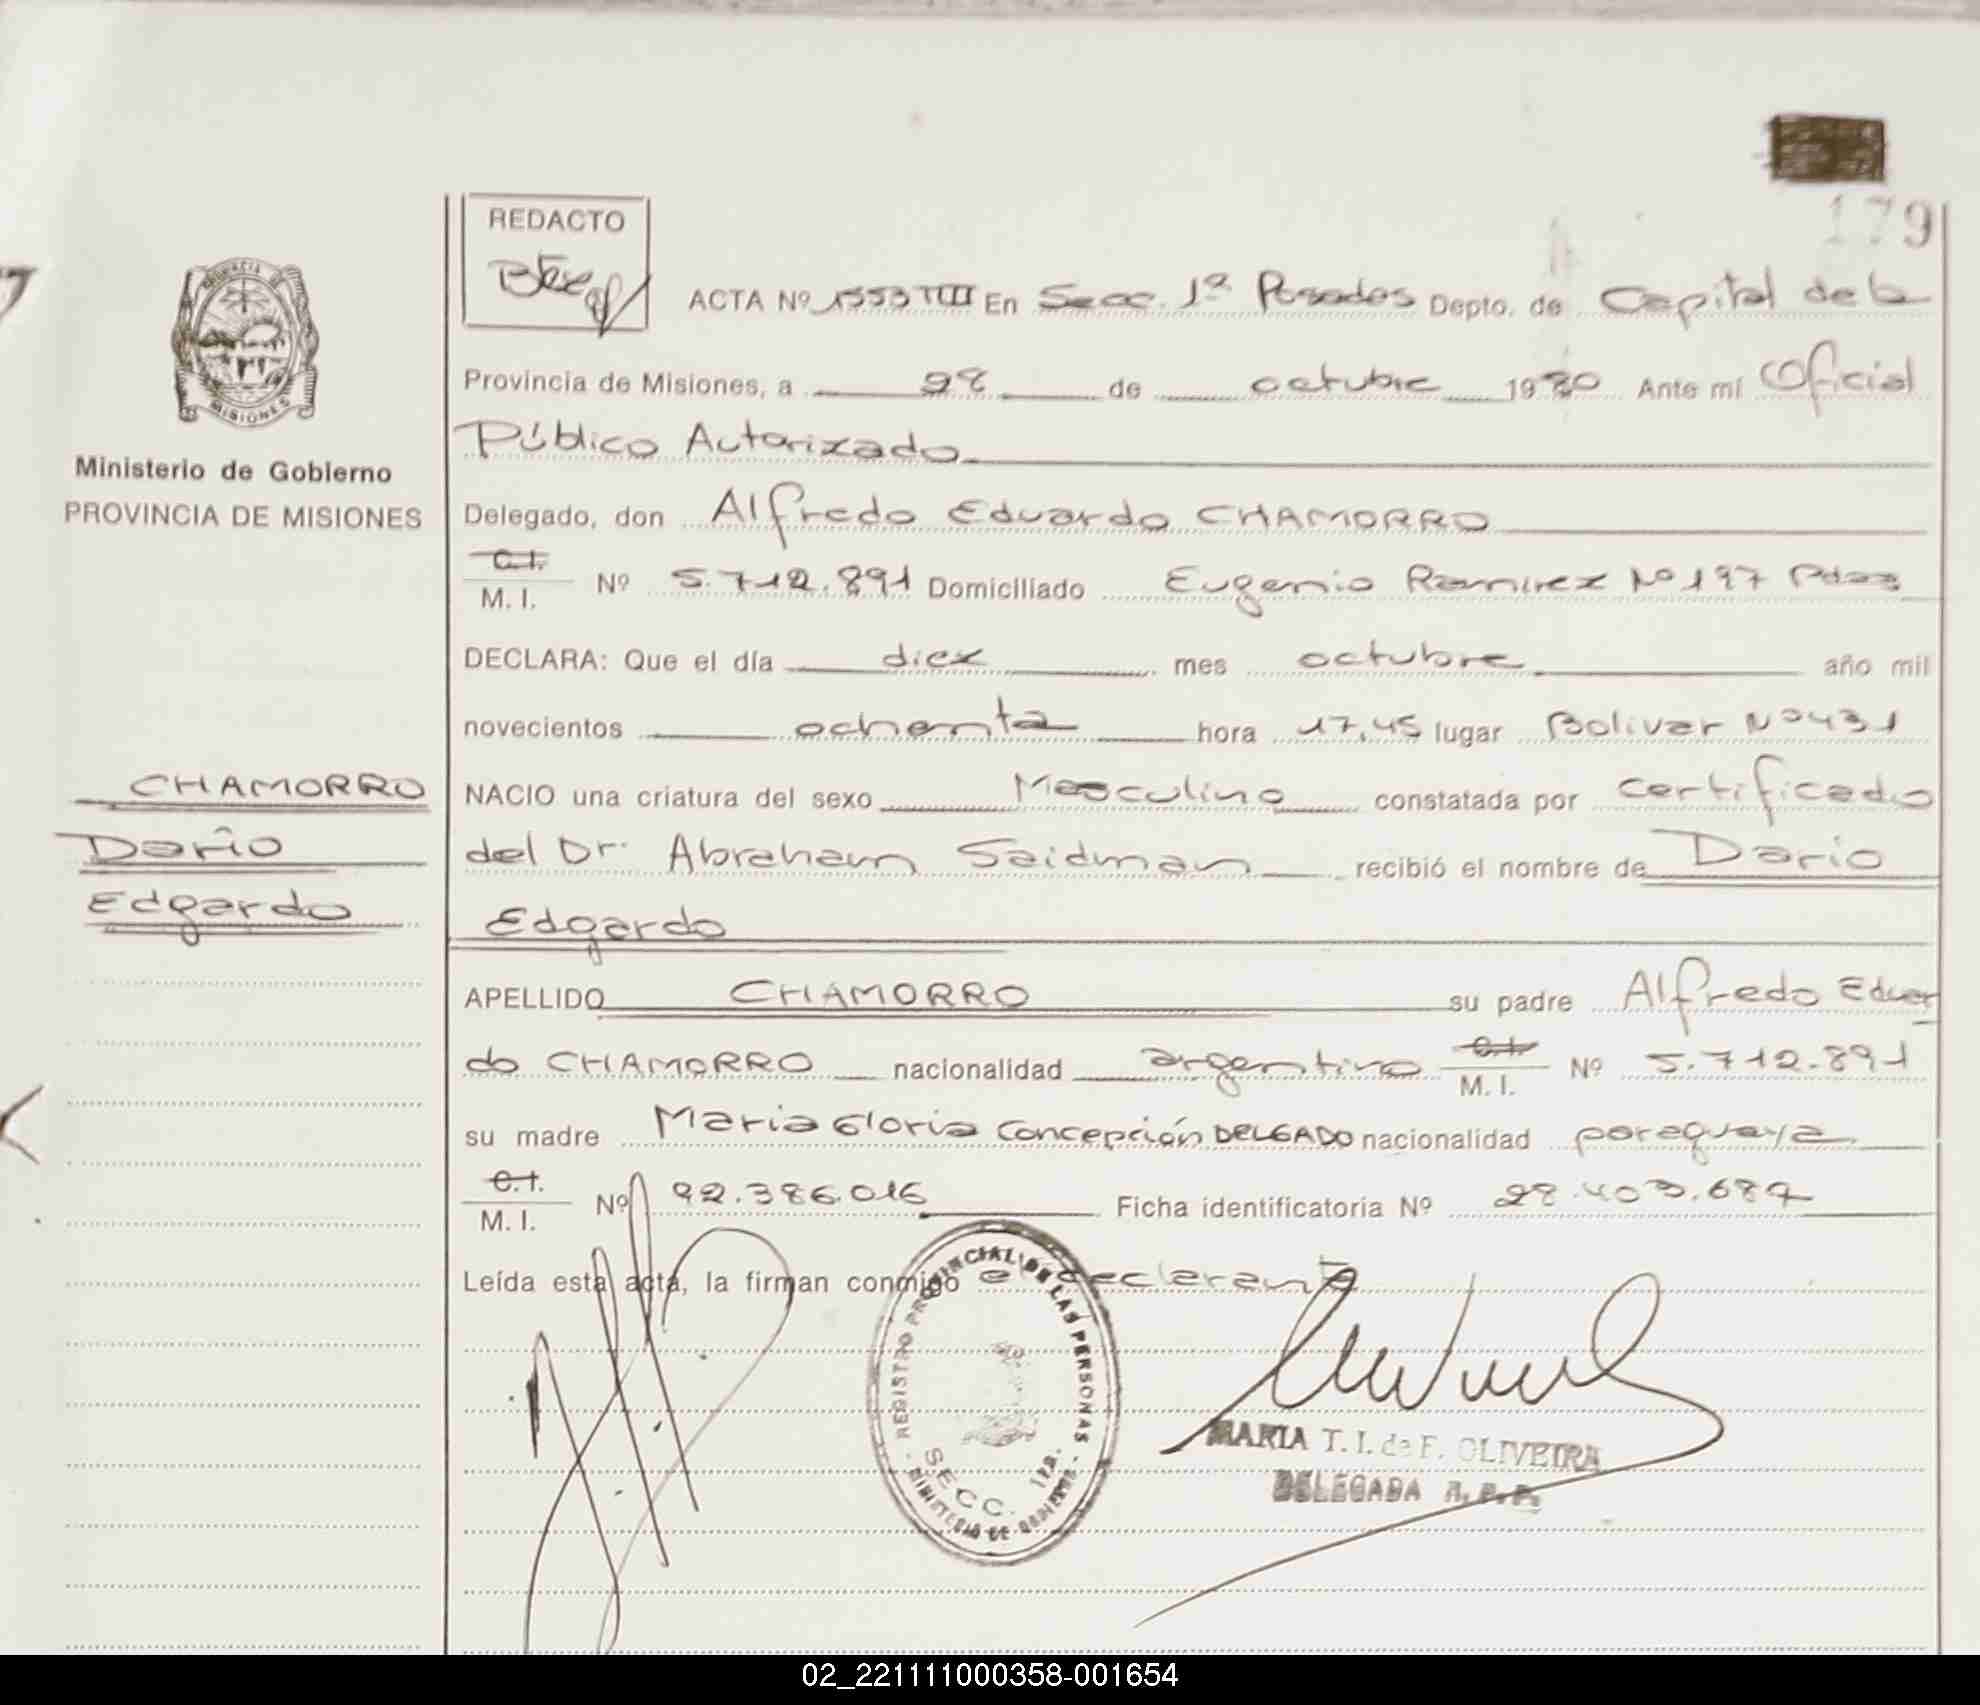 179
REDACTO
ACTA Nº 1553 TIII En Secc. 1ª Posadas Depto. de Capital de la
Provincia de Misiones, a 28 de octubre 1980 Ante mí Oficial
Público Autorizado
Ministerio de Gobierno
PROVINCIA DE MISIONES
Delegado, don Alfredo Eduardo CHAMORRO
C.I.
M. I. Nº 5.712.891 Domiciliado Eugenio Ramirez Nº 197 Pdas
DECLARA: Que el día diez mes octubre año mil
novecientos ochenta hora 17,45 lugar Bolivar Nº 431
CHAMORRO
Dario
Edgardo
NACIO una criatura del sexo Masculino constatada por certificado
del Dr. Abraham Saidman recibió el nombre de Dario
Edgardo
APELLIDO CHAMORRO su padre Alfredo Eduar
do CHAMORRO nacionalidad argentino C.I. M. I. Nº 5.712.891
su madre Maria Gloria Concepción DELGADO nacionalidad paraguaya
C.I.
M. I. Nº 92.386.016 Ficha identificatoria Nº 28.403.687
Leída esta acta, la firman conmigo el declarante
REGISTRO PROVINCIAL DE LAS PERSONAS
MINISTERIO DE GOBIERNO
SECC. 1ra.
MARIA T. I. de F. OLIVEIRA
DELEGADA R. P. P.
02_221111000358-001654